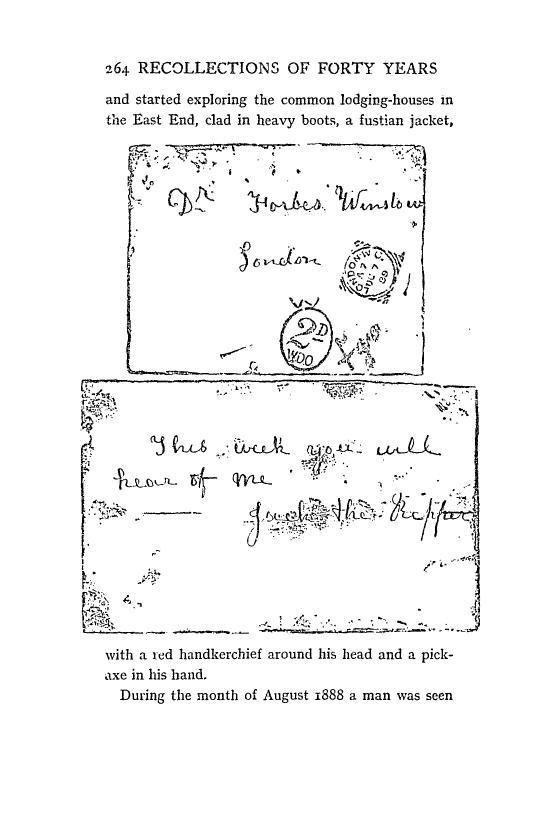 264 RECOLLECTIONS OF FORTY YEARS
and started exploring the common lodging-houses in
the East End, clad in heavy boots, a fustian jacket,
Dr Forbes Winslow
London
LONDON W.C.
A 7
89
2D
WDO
This week you will
hear of me
Jack the Ripper
with a red handkerchief around his head and a pick-
axe in his hand.
During the month of August 1888 a man was seen